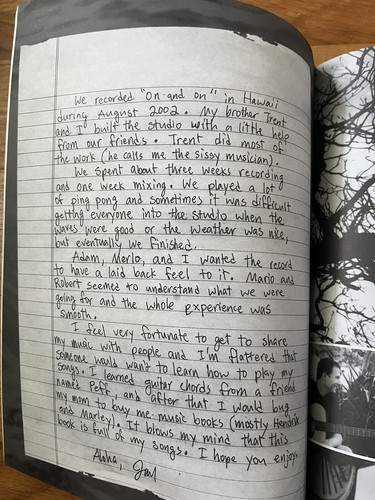 We recorded "On and on" in Hawaii
during August 2002. My brother Trent
and I built the studio with a little help
from our friends. Trent did most of
the work (he calls me the sissy musician).
We spent about three weeks recording
and one week mixing. We played a lot
of ping pong and sometimes it was difficult
getting everyone into the studio when the
waves were good or the weather was nice,
but eventually we finished.
Adam, Merlo, and I wanted the record
to have a laid back feel to it. Mario and
Robert seemed to understand what we were
going for and the whole experience was
smooth.
I feel very fortunate to get to share
my music with people and I'm flattered that
someone would want to learn how to play my
songs. I learned guitar chords from a friend
named Peff, and after that I would bug
my mom to buy me music books (mostly Hendrix
and Marley). It blows my mind that this
book is full of my songs. I hope you enjoy.
Aloha,